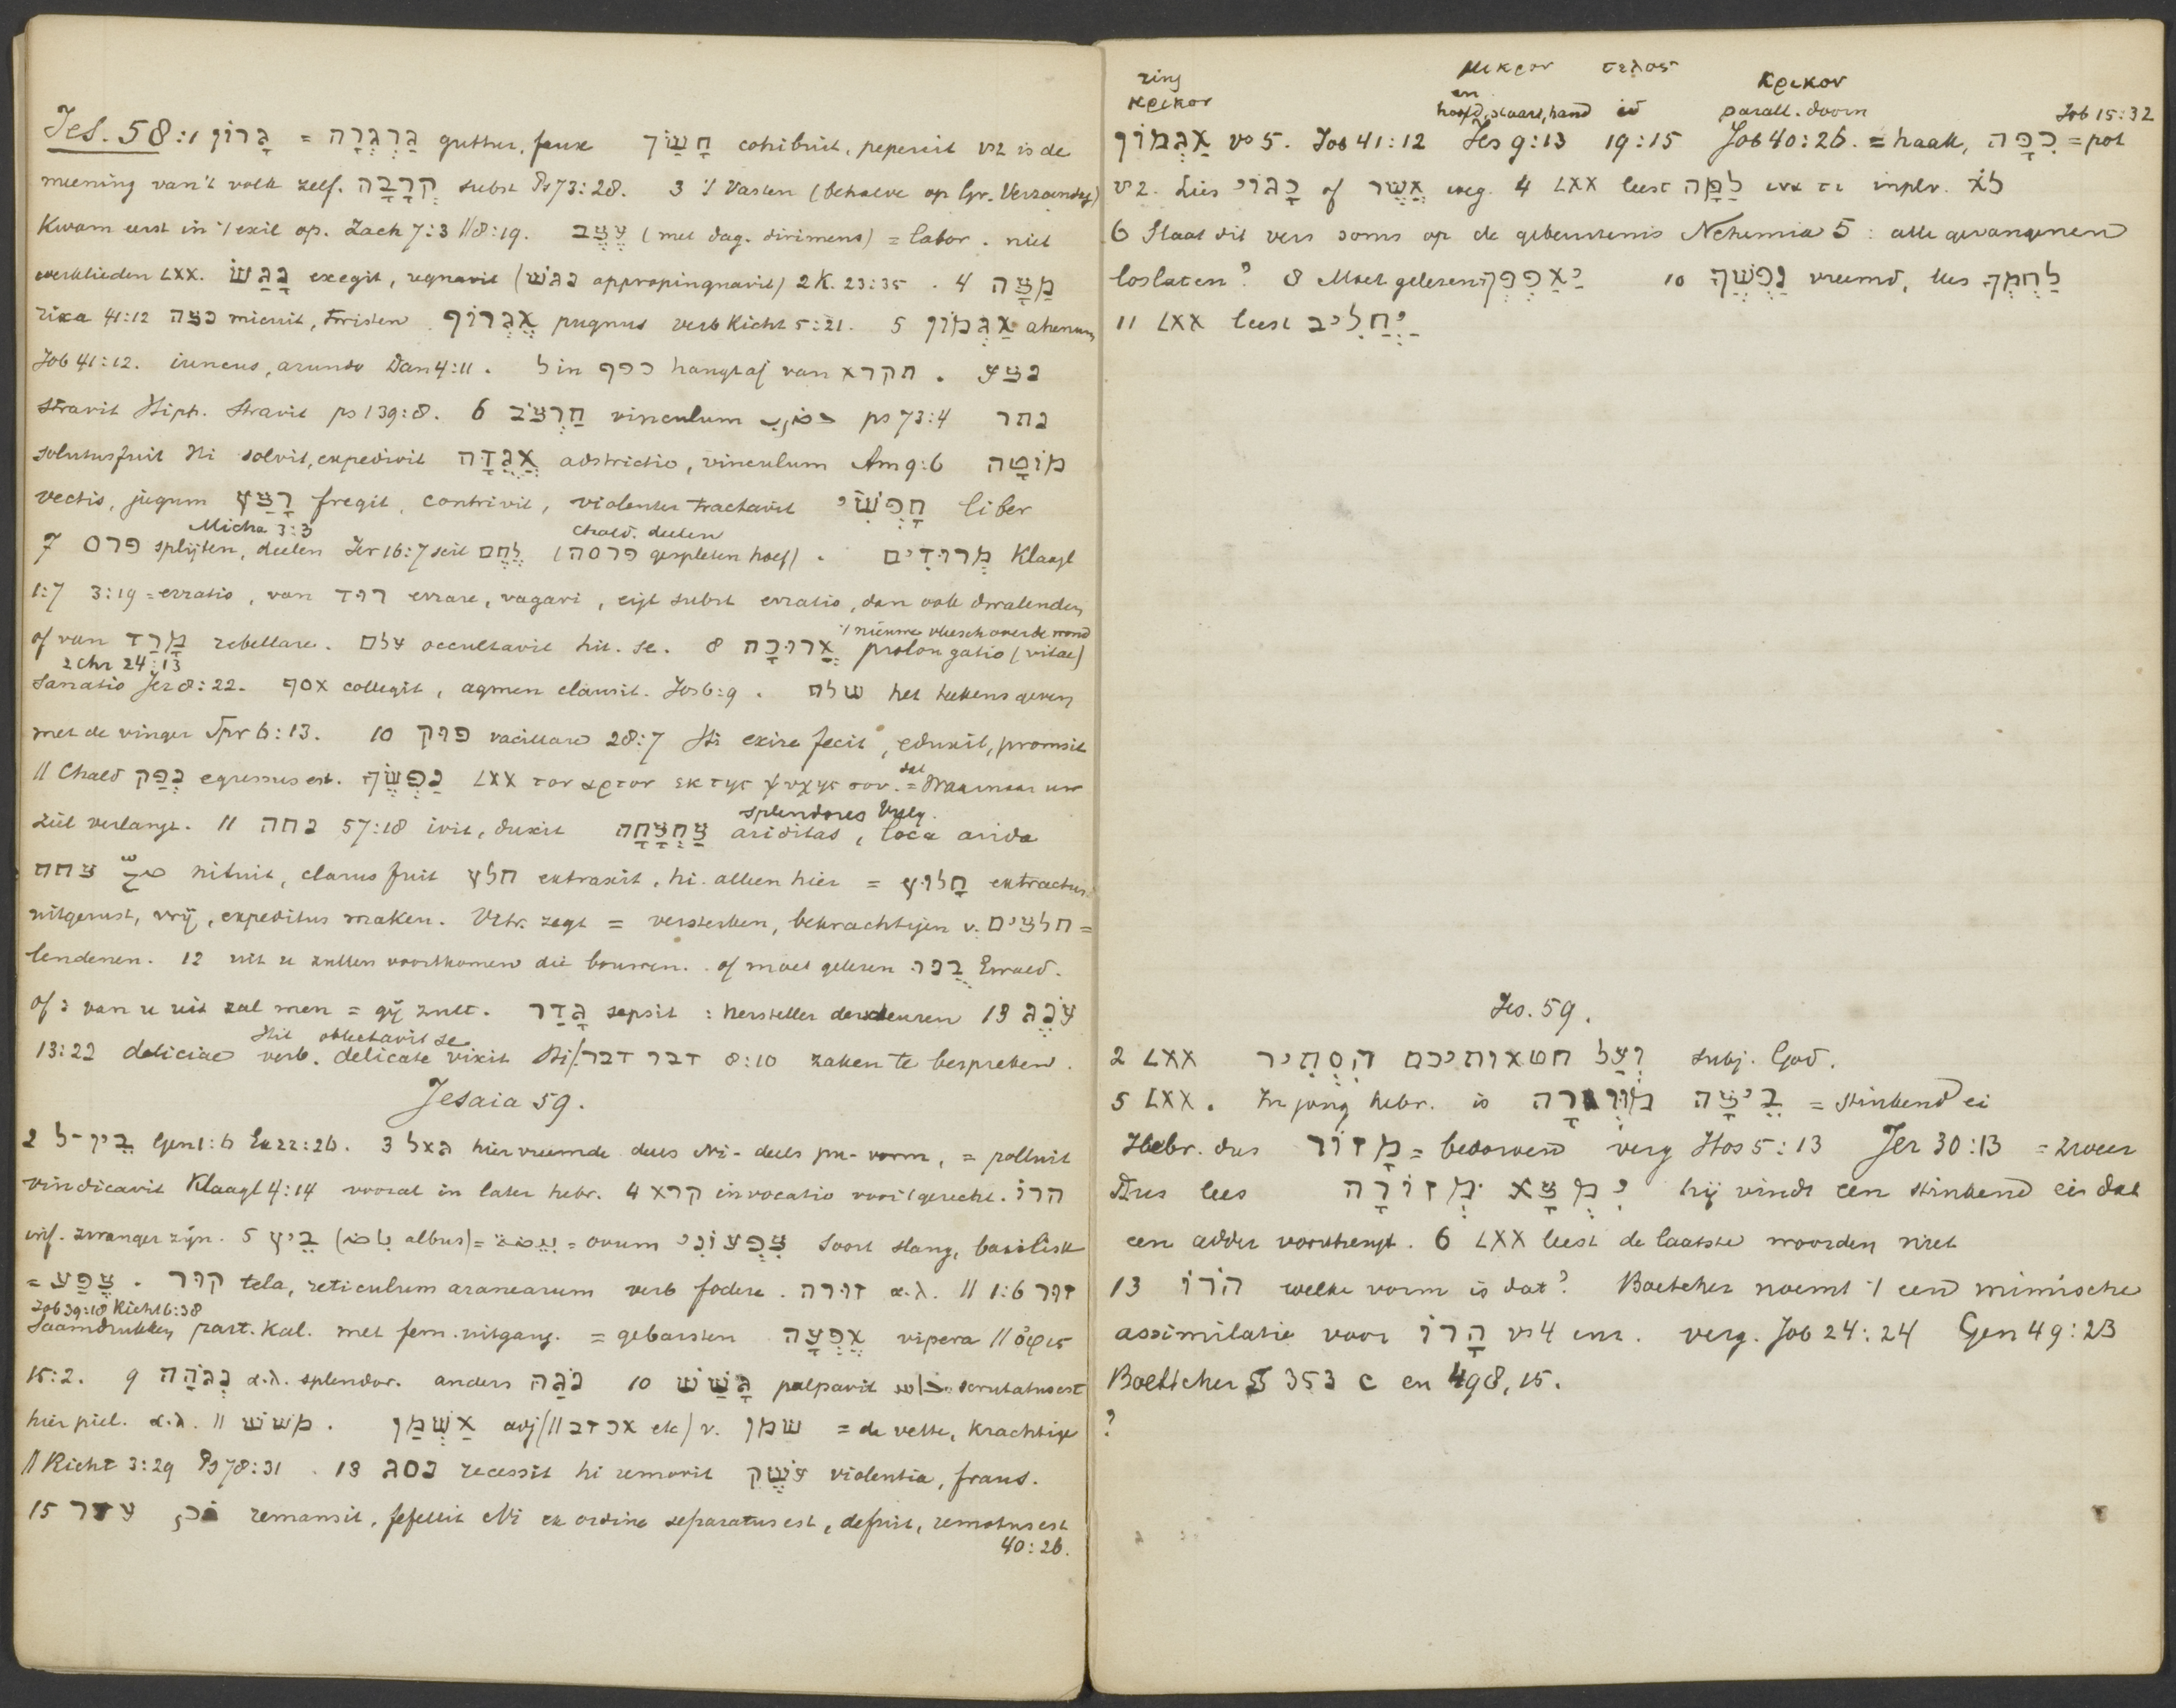 Jes. 58:1 גָּרוֹן = גַּרְגְּרָה guttur, faux חָשַׂךְ cohibuit, pepercit vs 2 is de
meening van 't volk zelf. קְרָבָה subst Ps 73:28. 3 't Vasten (behalve op Gr. Verzoendag)
Kwam eerst in 't exil op. Zach 7:3 // 8:19. עֶצֶב (met dag. dirimens) = labor. niet
werklieden LXX. נָגַשׂ exegit, regnavit (נגשׁ appropinquavit) 2 K. 23:35. 4 מַצָּה
rixa 41:12 נצה micuit, twisten. אֶגְרוֹף pugnus verb Richt 5:21. 5 אַגְמוֹן ahenum
Job 41:12. iuncus, arundo Dan 4:11. ל in כפף hangt af van תקרא. יצע
stravit Hiph. stravit ps 139:8. 6 חַרְצֹב vinculum حضرب ps 73:4 נתר
solutus fuit Hi solvit, expedivit אֲגֻדָּה adstrictio, vinculum Am 9:6 מוֹטָה
vectis, jugum רָצַץ fregit, contrivit, violenter tractavit חָפְשִׁי liber
Micha 3:3 Chald. deelen
7 פרס splijten, deelen Jer 16:7 scil לֶחֶם (פרסה gespleten hoef). מְרוּדִים Klaagl
1:7 3:19 = erratio, van רוד errare, vagari, eigl subst erratio, dan ook dwalenden
of van מָרַד rebellare. עלם occultavit hit. se. 8 אֲרוּכָה prolongatio (vitae)
't nieuwe vleesch over de wond
2 Chr 24:13
sanatio Jer 8:22. אסף collegit, agmen clausit. Jos 6:9. שלח het teekens geven
met de vinger Spr 6:13. 10 פוק vacillare 28:7 Hi exire fecit, eduxit, promsit
// Chald נְפַק egressus est. נַפְשֶׁךָ LXX τον αρτον εκ της ψυχης σου. = dat Waarnaar uw
ziel verlangt. 11 נחה 57:18 ivit, duxit צַחְצָחָה ariditas, loca arida
splendores Vulg.
צחח صحّ nituit, clarus fuit חלץ extraxit, hi. alleen hier = חָלוּץ extractus
uitgerust, vrij, expeditus maken. Vitr. zegt = versterken, bekrachtigen v. חלצים =
lendenen. 12 uit u zullen voortkomen die bouwen. of moet gelezen Ewald.
of: van u uit zal men = gij zult. גָּדַר sepsit: hersteller der scheuren 13 עֹנֶג
Hit oblectavit se
13:22 deliciae verb. delicate vixit Hi/. דבר דבר 8:10 zaken te bespreken.
Jesaia 59.
2 בֵּין־ל Gen 1:6 Ez 22:26. 3 גאל hier vreemde deels Ni- deels pu- vorm, = polluit
vindicavit Klaagl 4:14 vooral in later hebr. 4 קרא invocatio voor 't gerecht. הרוֹ
inf. zwanger zijn. 5 בֵּיץ (باض albus) = بيضة = ovum צִפְעוֹנִי soort slang, basilisk
= צֶפַע. קוּר tela, reticulum aranearum verb fodere. זוּרה α.λ. // 1:6 זור
Job 39:18 Richt 6:38
Saamdrukken part. Kal. met fem. uitgang. = gebarsten אֶפְעָה vipera // ὄφις
15:2. 9 נְגֹהָה α.λ. splendor. anders נֹגַהּ 10 גָּשַׁשׁ palpavit جسّ scrutatus est
hier piel. α.λ. // משש. אַשְׁמַן adj (// אכזב etc) v. שמן = de vette, krachtige
// Richt 3:29 Ps 78:31. 13 נסג recessit hi removit עֹשֶׁק violentia, fraus.
15 עדר remansit, fefellit Ni ex ordine separatus est, defuit, remotus est
40:26.
ring μικρον τελος κρικον
κρικον en hoofd, staart, hand parall. doorn Job 15:32
אַגְמוֹן vs 5. Job 41:12 Jes 9:13 19:15 Job 40:26. = haak, כִּפָּה = pot
vs 2. Lies כְּגוֹי of אֲשֶׁר weg. 4 LXX leest לָמָּה ινα τι inplv. לֹא
6 Slaat dit vers soms op de gebeurtenis Nehemia 5: alle gevangenen
loslaten? 8 Moet gelezen יַאַסְפֶךָ 10 נַפְשֶׁךָ vreemd, lees לַחְמְךָ
11 LXX leest יַחֲלִיב
Jes. 59.
2 LXX וְעַל חטאותיכם הִסְתִיר subj. God.
5 LXX. In jong hebr. is בֵּיצָה מוּזָרָה = stinkend ei
Hebr. dus מָזוֹר = bedorven verg Hos 5:13 Jer 30:13 = zweer
Dus lees יִמְצָא מְזוֹרָה hij vindt een stinkend ei dat
een adder voortbrengt. 6 LXX leest de laatste woorden niet
13 הֹרוֹ welke vorm is dat? Boetcher noemt 't een mimische
assimilatie voor הָרוֹ vs 4 enz. verg. Job 24:24 Gen 49:23
Boettcher § 353 c en 498, 15.
?